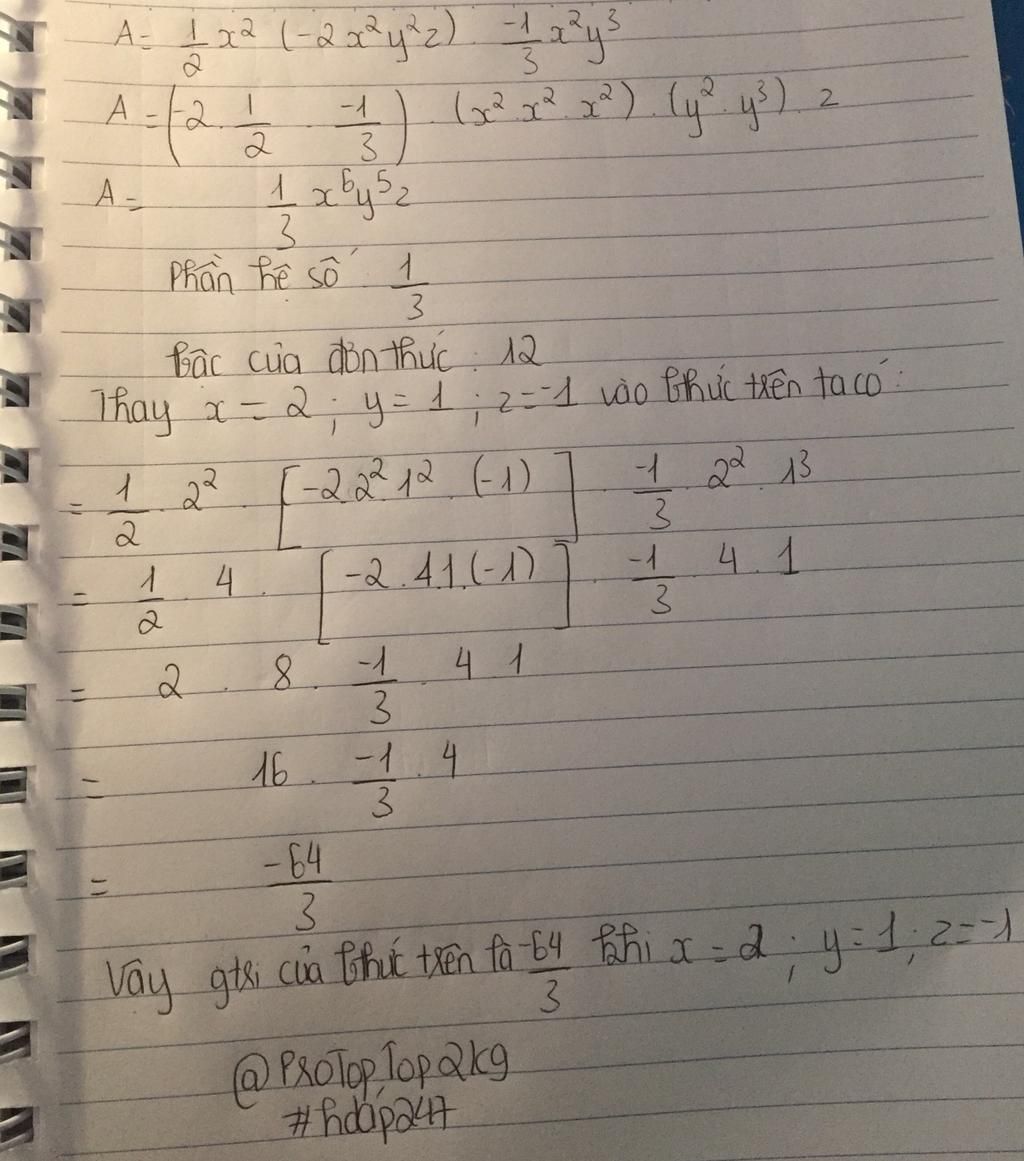 A = 1/2 x² (-2x²y²z) . -1/3 x²y³
A = (-2 . 1/2 . -1/3) . (x² . x² . x²) . (y² . y³) . z
A = 1/3 x⁶y⁵z
Phần hệ số 1/3
Bậc của đơn thức : 12
Thay x = 2 ; y = 1 ; z = -1 vào bthức trên ta có :
= 1/2 . 2² . [-2 . 2² . 1² . (-1)] . -1/3 . 2² . 1³
= 1/2 . 4 . [-2 . 4 . 1 . (-1)] . -1/3 . 4 . 1
= 2 . 8 . -1/3 . 4 . 1
= 16 . -1/3 . 4
= -64/3
Vậy gtri của bthức trên là -64/3 khi x = 2 ; y = 1 ; z = -1
@ProTopTop2kg
#hdáp247